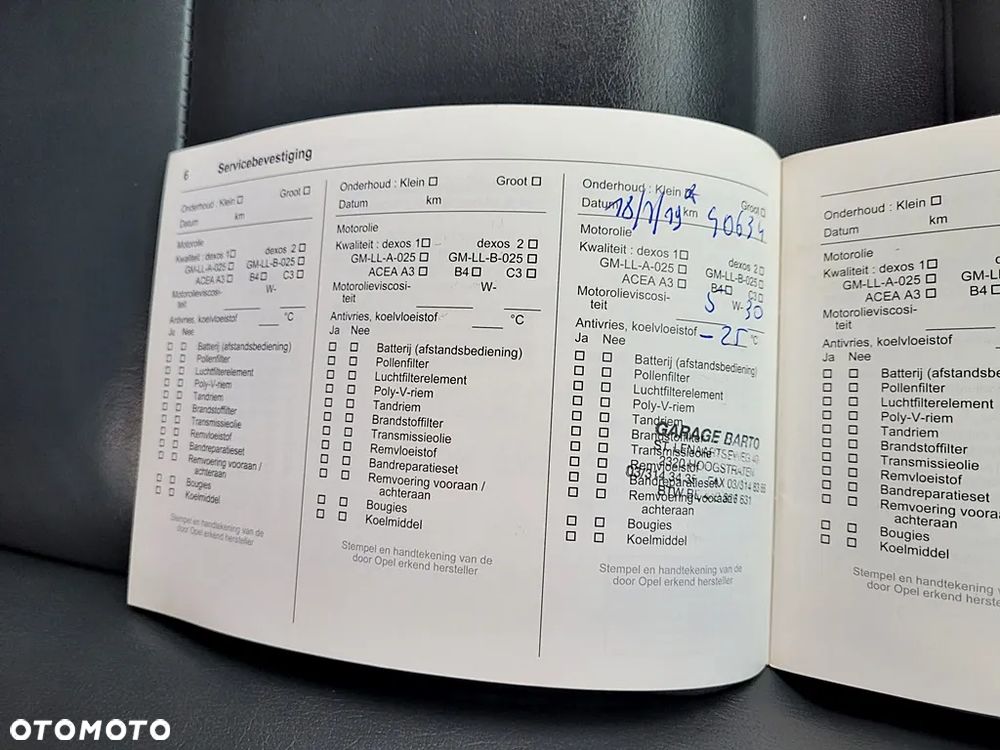 6 Servicebevestiging
Onderhoud : Klein ☐ Groot ☐
Datum km
Motorolie
Kwaliteit : dexos 1☐ dexos 2 ☐
GM-LL-A-025 ☐ GM-LL-B-025 ☐
ACEA A3 ☐ B4 ☐ C3 ☐
Motorolieviscosi- W-
teit
Antivries, koelvloeistof °C
Ja Nee
☐ ☐ Batterij (afstandsbediening)
☐ ☐ Pollenfilter
☐ ☐ Luchtfilterelement
☐ ☐ Poly-V-riem
☐ ☐ Tandriem
☐ ☐ Brandstoffilter
☐ ☐ Transmissieolie
☐ ☐ Remvloeistof
☐ ☐ Bandreparatieset
☐ ☐ Remvoering vooraan /
achteraan
☐ ☐ Bougies
☐ ☐ Koelmiddel
Stempel en handtekening van de
door Opel erkend hersteller
Onderhoud : Klein ☐ Groot ☐
Datum km
Motorolie
Kwaliteit : dexos 1☐ dexos 2 ☐
GM-LL-A-025 ☐ GM-LL-B-025 ☐
ACEA A3 ☐ B4 ☐ C3 ☐
Motorolieviscosi- W-
teit
Antivries, koelvloeistof °C
Ja Nee
☐ ☐ Batterij (afstandsbediening)
☐ ☐ Pollenfilter
☐ ☐ Luchtfilterelement
☐ ☐ Poly-V-riem
☐ ☐ Tandriem
☐ ☐ Brandstoffilter
☐ ☐ Transmissieolie
☐ ☐ Remvloeistof
☐ ☐ Bandreparatieset
☐ ☐ Remvoering vooraan /
achteraan
☐ ☐ Bougies
☐ ☐ Koelmiddel
Stempel en handtekening van de
door Opel erkend hersteller
Onderhoud : Klein Groot ☐
Datum 18/1/19 km 40634
Motorolie
Kwaliteit : dexos 1☐ dexos 2☐
GM-LL-A-025 ☐ GM-LL-B-025 ☐
ACEA A3 ☐ B4☐ C3 ☐
Motorolieviscosi- 5 W-30
teit
Antivries, koelvloeistof -25 °C
Ja Nee
☐ ☐ Batterij (afstandsbediening)
☐ ☐ Pollenfilter
☐ ☐ Luchtfilterelement
☐ ☐ Poly-V-riem
☐ ☐ Tandriem
☐ ☐ Brandstoffilter
☐ ☐ Transmissieolie
☐ ☐ Remvloeistof
☐ ☐ Bandreparatieset
☐ ☐ Remvoering vooraan /
achteraan
☐ ☐ Bougies
☐ ☐ Koelmiddel
GARAGE BARTO
2320 HOOGSTRATEN
03/314 34 35 FAX 03/314
Stempel en handtekening van de
door Opel erkend hersteller
Onderhoud : Klein ☐
Datum km
Motorolie
Kwaliteit : dexos 1☐
GM-LL-A-025 ☐ GM-L
ACEA A3 ☐ B4☐
Motorolieviscosi-
teit
Antivries, koelvloeistof
Ja Nee
☐ ☐ Batterij (afstandsbe
☐ ☐ Pollenfilter
☐ ☐ Luchtfilterelement
☐ ☐ Poly-V-riem
☐ ☐ Tandriem
☐ ☐ Brandstoffilter
☐ ☐ Transmissieolie
☐ ☐ Remvloeistof
☐ ☐ Bandreparatieset
☐ ☐ Remvoering voora
achteraan
☐ ☐ Bougies
☐ ☐ Koelmiddel
Stempel en handtekening v
door Opel erkend herste
OTOMOTO